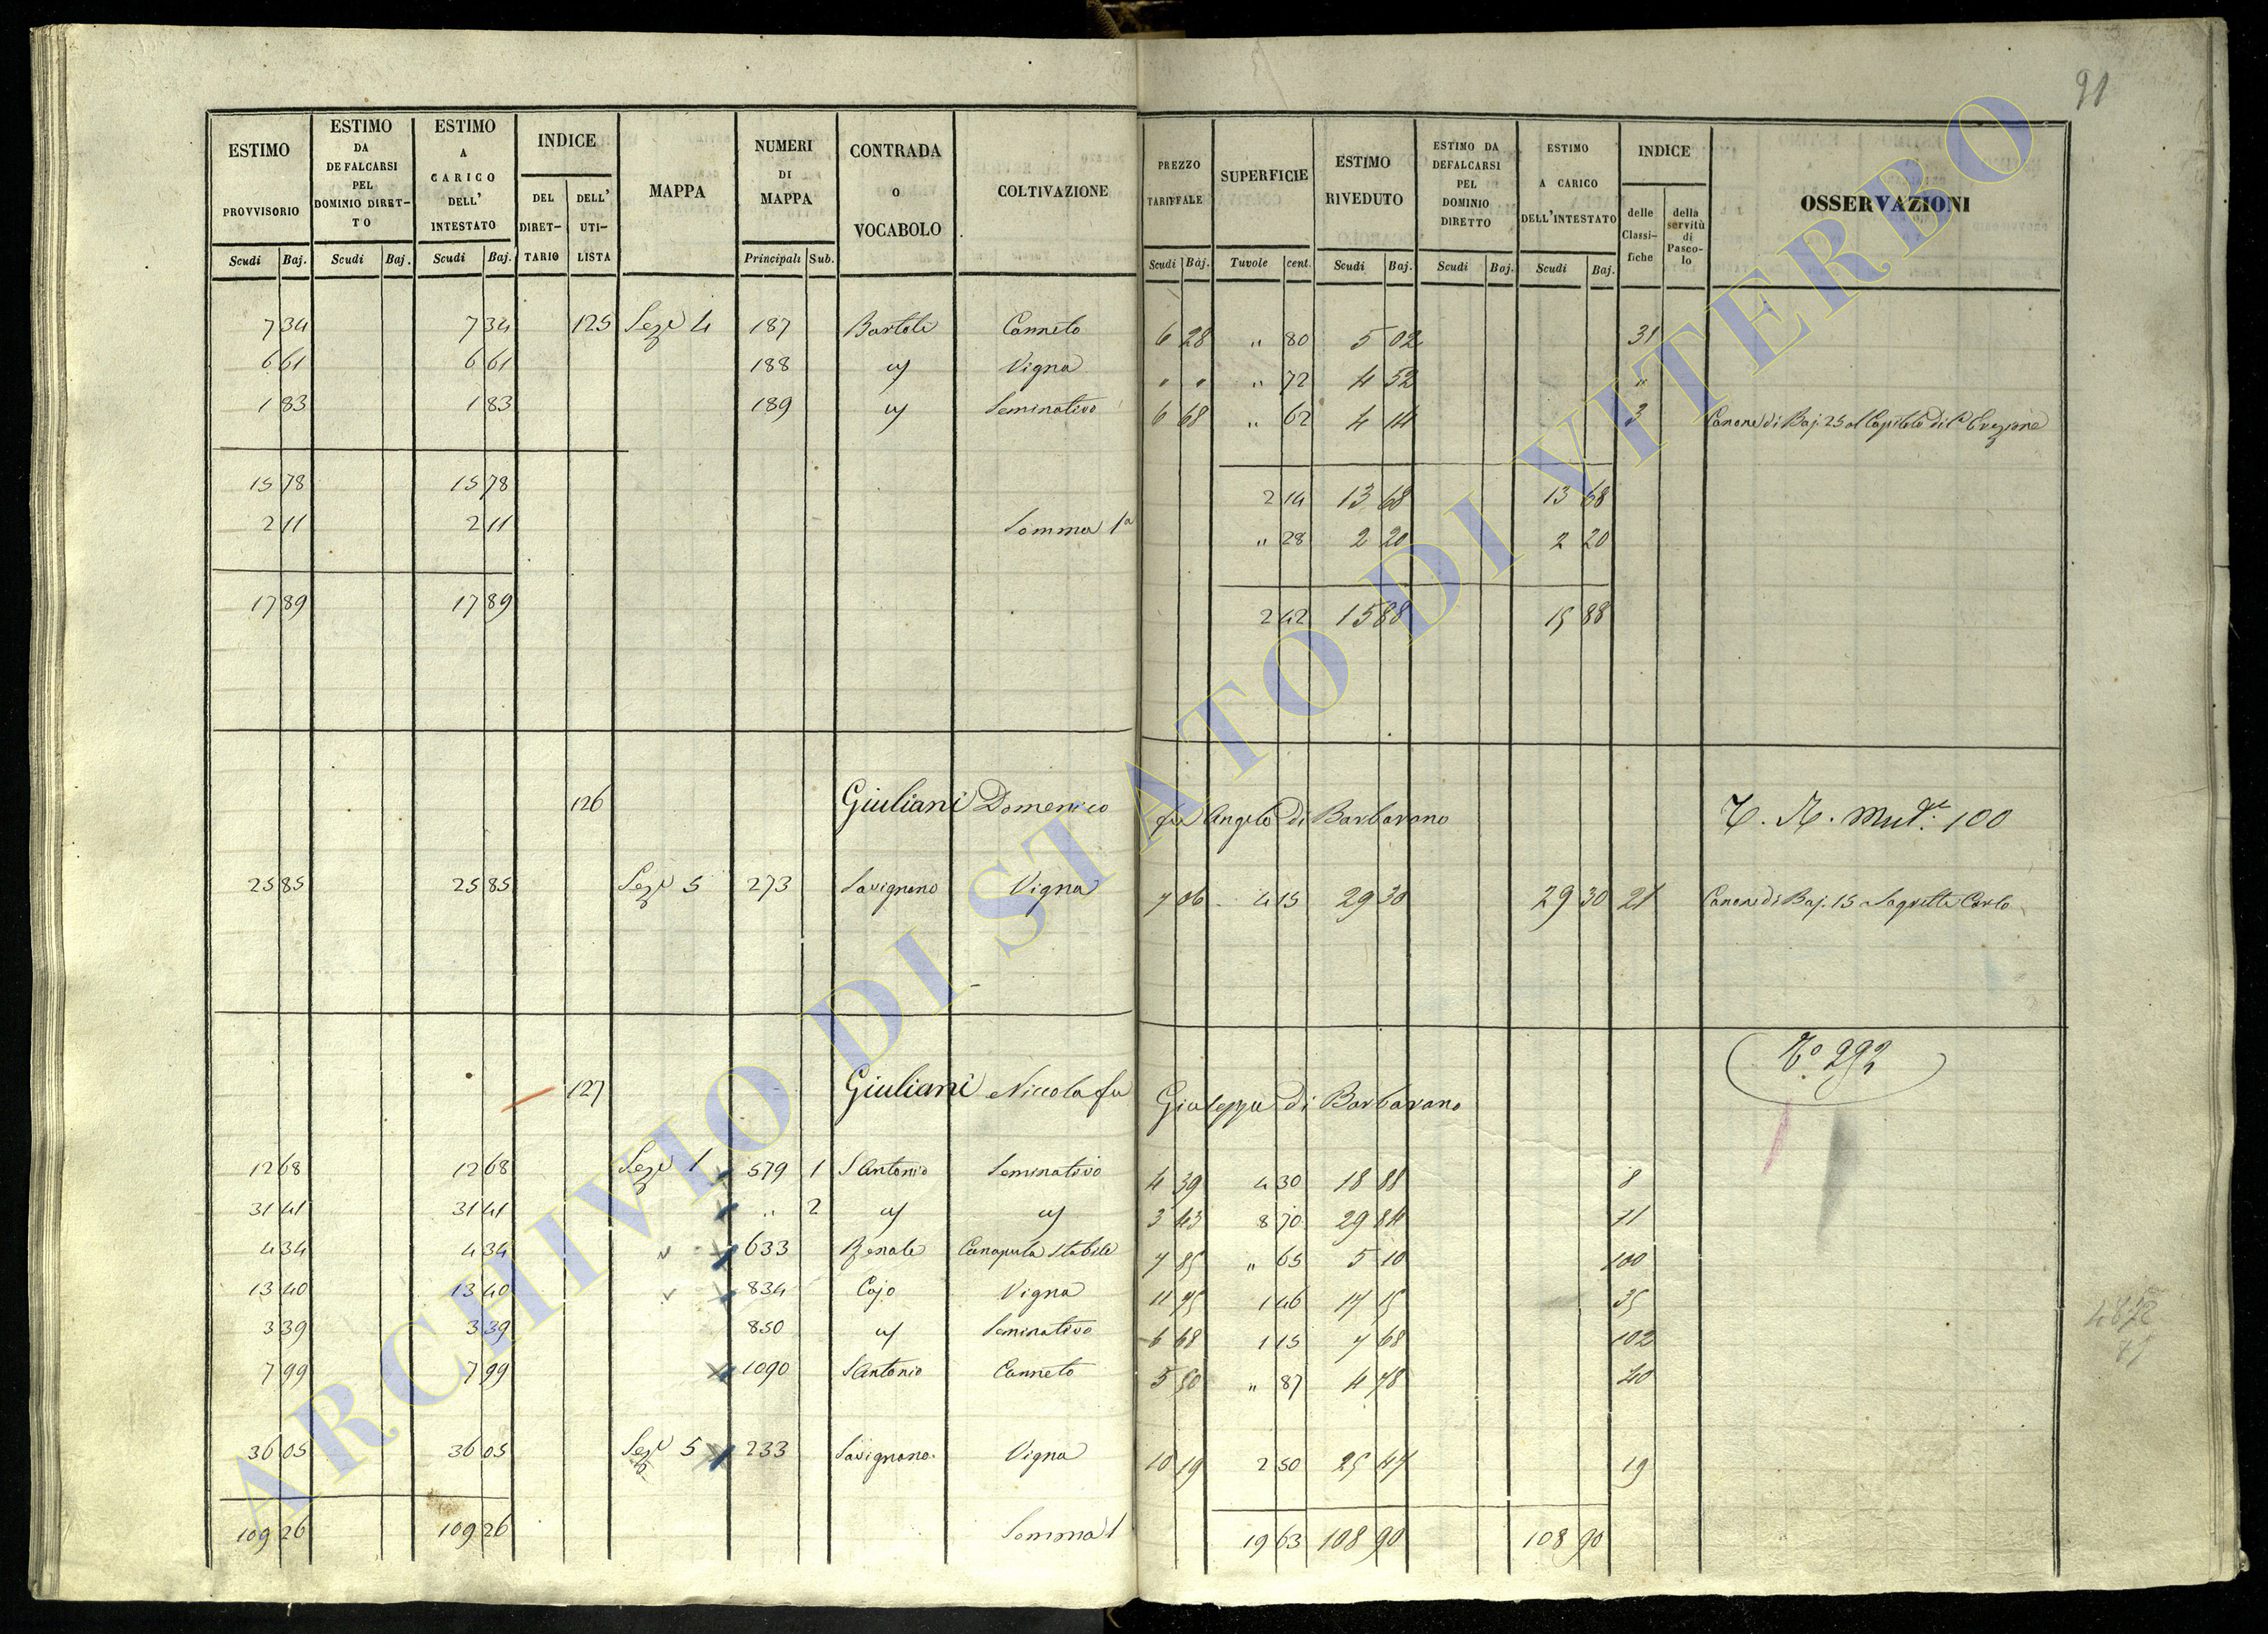 91
ESTIMO PROVVISORIO Scudi Baj.
ESTIMO DA DEFALCARSI PEL DOMINIO DIRET-TO Scudi Baj.
ESTIMO A CARICO DELL' INTESTATO Scudi Baj.
INDICE DEL DIRET-TARIO DELL' UTI-LISTA
MAPPA
NUMERI DI MAPPA Principali Sub.
CONTRADA O VOCABOLO
COLTIVAZIONE
PREZZO TARIFFALE Scudi Baj.
SUPERFICIE Tuvole cent.
ESTIMO RIVEDUTO Scudi Baj.
ESTIMO DA DEFALCARSI PEL DOMINIO DIRETTO Scudi Baj.
ESTIMO A CARICO DELL'INTESTATO Scudi Baj.
INDICE delle Classi-fiche della servitù di Pasco-lo
OSSERVAZIONI
7 34 7 34 125 Sezе 4 187 Bartoli Canneto 6 28 " 80 5 02 31
6 61 6 61 188 " Vigna " " " 72 4 52 "
1 83 1 83 189 " Seminativo 6 68 " 62 4 14 3 Canone di Baj. 25 al Capitolo di
15 78 15 78 2 14 13 68 13 68
2 11 2 11 Somma 1a " 28 2 20 2 20
17 89 17 89 2 42 15 88 15 88
126 Giuliani Domenico fu Angelo di Barbarano 100
25 85 25 85 Sez 5 273 Savignano Vigna 7 06 4 15 29 30 29 30 21 Canone di Baj. 15 Sagretti Carlo
127 Giuliani Niccola fu Giuseppe di Barbarano No 292
12 68 12 68 Sez 1 579 1 S Antonio Seminativo 4 39 4 30 18 88 8
31 41 31 41 " 2 " " 3 43 8 70 29 84 11
4 34 4 34 633 Canapula stabile 7 85 " 65 5 10 100
13 40 13 40 834 Cojo Vigna 11 75 1 46 17 15 35
3 39 3 39 850 " Seminativo 6 68 1 15 7 68 102
7 99 7 99 1090 S Antonio Canneto 5 50 " 87 4 78 40
36 05 36 05 Sez 5 233 Savignano Vigna 10 19 2 50 25 47 19
109 26 109 26 Somma 1 19 63 108 90 108 90
ARCHIVIO DI STATO DI VITERBO